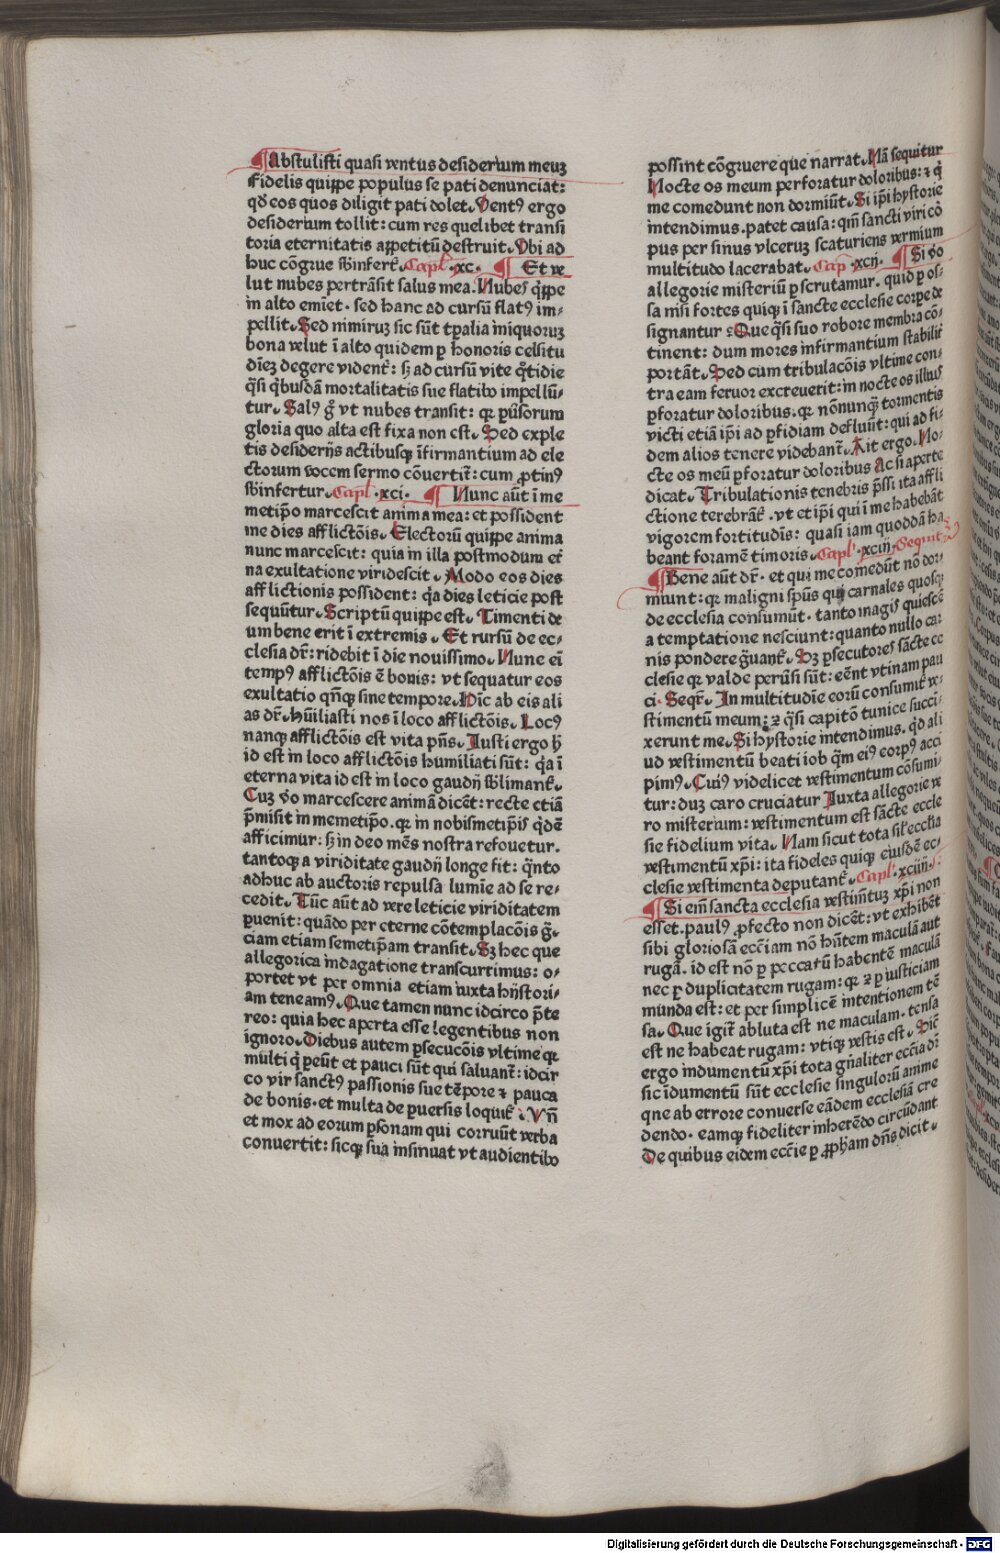 ¶ Abstulisti quasi ventus desiderium meuʒ
Fidelis quippe populus se pati denunciat:
qđ eos quos diligit pati dolet. Ventꝰ ergo
desiderium tollit: cum res quelibet transi
toria eternitatis appetitū destruit. Vbi ad
huc cōgrue sbinfert̄. Capl̓ .xc. ¶ Et ve
lut nubes pertrāsit salus mea. Nubes q̄ppe
in alto emīet. sed hanc ad cursū flatꝰ im⸗
pellit. Sed nimiruʒ sic sūt tp̄alia iniquoruʒ
bona velut ī alto quidem ꝑ honoris celsitu
dīeʒ degere vident̄: sʒ ad cursū vite q̄tidie
q̄si q̄busdā mortalitatis sue flatibꝰ impellū⸗
tur. Salꝰ g̊ vt nubes transit: qꝛ pūsorum
gloria quo alta est fixa non est. Sed exple
tis desiderijs actibusqꝫ īfirmantium ad ele
ctorum vocem sermo cōuertit̄: cum ꝓtinꝰ
sbinfertur. Capl̓ .xci. ¶ Nunc aūt ī me
metip̄o marcescit anima mea: et possident
me dies afflictōis. Electorū quippe anima
nunc marcescit: quia in illa postmodum et̄
na exultatione viridescit. Modo eos dies
afflictionis possident: q̄a dies leticie post
sequūtur. Scriptū quippe est. Timenti de
um bene erit ī extremis. Et rursū de ec⸗
clesia dr̄: ridebit ī die nouissimo. Nunc eī
tempꝰ afflictōis ē bonis: vt sequatur eos
exultatio qn̄qꝫ sine tempore. Hīc ab eis ali
as dr̄. hūiliasti nos ī loco afflictōis. Locꝰ
nanqꝫ afflictōis est vita pn̄s. Iusti ergo h̄
id est in loco afflictōis humiliati sūt: q̄a ī
eterna vita id est in loco gaudij sblimant̄.
Cuʒ v̊o marcescere animā dicēt: recte etiā
p̄misit in memetip̄o. qꝛ in nobismetip̄is q̄dē
afficimur: sʒ in deo mēs nostra refouetur.
tantoqꝫ a viriditate gaudij longe fit: q̄nto
adhuc ab auctoris repulsa lumīe ad se re⸗
cedit. Tūc aūt ad vere leticie viriditatem
ꝑuenit: quādo per eterne cōtemplacōis ḡ⸗
ciam etiam semetip̄am transit. Sʒ hec que
allegorica indagatione transcurrimus: o⸗
portet vt per omnia etiam iuxta hystori⸗
am teneamꝰ. Que tamen nunc idcirco p̄te
reo: quia hec aperta esse legentibus non
ignoro. Diebus autem ꝑsecucōis vltime qꝛ
multi q̄ ꝑeūt et pauci sūt qui saluant̄: idcir
co vir sanctꝰ passionis sue tēpore ⁊ pauca
de bonis. et multa de ꝑuersis loquit̄. Vn̄
et mox ad eorum ꝑsonam qui corruūt verba
conuertit: sicqꝫ sua insinuat vt audientibꝰ
possint cōgruere que narrat. Nā sequitur
Nocte os meum perforatur doloribus: ⁊ q̄
me comedunt non dormiūt. Si ip̄i hystorie
intendimus. patet causa: qm̄ sancti viri cō
pus per sinus vlceruʒ scaturiens vermium
multitudo lacerabat. Cap̄ .xcij. ¶ Si v̊o
allegorie misteriū ꝑscrutamur. quid ꝑ os⸗
sa nisi fortes quiqꝫ ī sancte ecclesie corpe de
signantur: Que q̄si suo robore membra cō⸗
tinent: dum mores infirmantium stabilit̄
portāt. Sed cum tribulacōis vltime con⸗
tra eam feruor excreuerit: in nocte os illius
ꝑforatur doloribus. qꝛ nōnunqꝫ̄ tormentis
victi etiā ip̄i ad ꝑfidiam defluūt: qui ad fi⸗
dem alios tenere videbant̄. Ait ergo. No⸗
cte os meū ꝑforatur doloribus Ac si aperte
dicat. Tribulationis tenebris p̄ssi ita affli
ctione terebrāt̄. vt et ip̄i qui ī me habebāt
vigorem fortitudīs: quasi iam quoddā ha⸗
beant foramē timoris. Capl̓ .xciij. Sequit̄
¶ Bene aūt dr̄. et qui me comedūt nō dor⸗
miunt: qꝛ maligni sp̄us qui carnales quosqꝫ
de ecclesia consumūt. tanto magis quiescē
a temptatione nesciunt: quanto nullo car
nis pondere g̊uant̄. Sʒ ꝑsecutores sācte ec
clesie qꝛ valde peruersi sūt: eēnt vtinam pau
ci. Seqr̄. In multitudīe eorū consumit̄ ve⸗
stimentū meum: ⁊ q̄si capitō tunice succi⸗
xerunt me. Si hystorie intendimus. qđ ali
ud vestimentū beati iob q̄m eiꝰ corpꝰ acci
pimꝰ. Cuiꝰ videlicet vestimentum cōsumi⸗
tur: duʒ caro cruciatur Iuxta allegorie ve
ro misterium: vestimentum est sācte eccle
sie fidelium vita. Nam sicut tota sil̓ eccl̄ia
vestimentū xp̄i: ita fideles quiqꝫ eiusdē ec⸗
clesie vestimenta deputant̄. Capl̓ .xciiij.
¶ Si em̄ sancta ecclesia vestim̄tuʒ xp̄i non
esset. paulꝰ ꝓfecto non dicēt: vt exhibēt
sibi gloriosā eccl̄iam nō hn̄tem maculā aut
rugā. id est nō ꝑ peccatū habentē maculā
nec ꝑ duplicitatem rugam: qꝛ ⁊ ꝑ iusticiam
munda est: et per simplicē intentionem tē
sa. Que igit̄ abluta est ne maculam. tensa
est ne habeat rugam: vtiqꝫ vestis est. Sic̄
ergo indumentū xp̄i tota gn̄aliter eccl̄ia dr̄
sic īdumentū sūt ecclesie singulorū anime
qne ab errore conuerse eādem ecclesiā cre
dendo. eamqꝫ fideliter inherēdo circūdant
De quibus eidem eccl̄ie ꝑ ꝓpham dn̄s dicit.
Digitalisierung gefördert durch die Deutsche Forschungsgemeinschaft - DFG